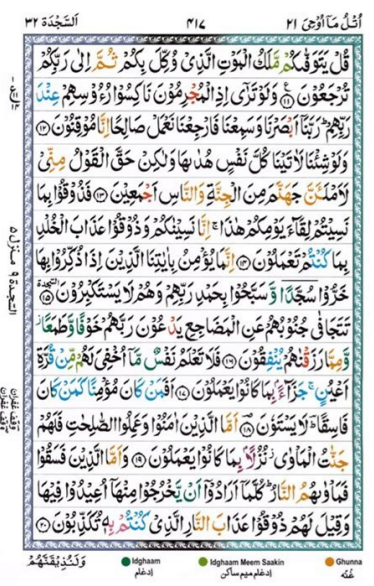 اَلسَّجْدَة ٣٢ ٤١٧ اُتْلُ مَاۤ اُوْحِیَ ٢١
قُلْ یَتَوَفّٰىكُمْ مَّلَكُ الْمَوْتِ الَّذِیْ وُكِّلَ بِكُمْ ثُمَّ اِلٰی رَبِّكُمْ
تُرْجَعُوْنَ ﴿۱۱﴾ وَلَوْ تَرٰۤی اِذِ الْمُجْرِمُوْنَ نَاكِسُوْا رُءُوْسِهِمْ عِنْدَ
رَبِّهِمْ ؕ رَبَّنَاۤ اَبْصَرْنَا وَسَمِعْنَا فَارْجِعْنَا نَعْمَلْ صَالِحًا اِنَّا مُوْقِنُوْنَ ﴿۱۲﴾
وَلَوْ شِئْنَا لَاٰتَیْنَا كُلَّ نَفْسٍ هُدٰىهَا وَلٰكِنْ حَقَّ الْقَوْلُ مِنِّیْ
لَاَمْلَـَٔنَّ جَهَنَّمَ مِنَ الْجِنَّةِ وَالنَّاسِ اَجْمَعِیْنَ ﴿۱۳﴾ فَذُوْقُوْا بِمَا
نَسِیْتُمْ لِقَآءَ یَوْمِكُمْ هٰذَا ۚ اِنَّا نَسِیْنٰكُمْ وَذُوْقُوْا عَذَابَ الْخُلْدِ
بِمَا كُنْتُمْ تَعْمَلُوْنَ ﴿۱۴﴾ اِنَّمَا یُؤْمِنُ بِاٰیٰتِنَا الَّذِیْنَ اِذَا ذُكِّرُوْا بِهَا
خَرُّوْا سُجَّدًا وَّسَبَّحُوْا بِحَمْدِ رَبِّهِمْ وَهُمْ لَا یَسْتَكْبِرُوْنَ ﴿۱۵﴾
تَتَجَافٰی جُنُوْبُهُمْ عَنِ الْمَضَاجِعِ یَدْعُوْنَ رَبَّهُمْ خَوْفًا وَّطَمَعًا ؗ
وَّمِمَّا رَزَقْنٰهُمْ یُنْفِقُوْنَ ﴿۱۶﴾ فَلَا تَعْلَمُ نَفْسٌ مَّاۤ اُخْفِیَ لَهُمْ مِّنْ قُرَّةِ
اَعْیُنٍ ۚ جَزَآءًۢ بِمَا كَانُوْا یَعْمَلُوْنَ ﴿۱۷﴾ اَفَمَنْ كَانَ مُؤْمِنًا كَمَنْ كَانَ
فَاسِقًا ؔؕ لَا یَسْتَوٗنَ ﴿۱۸﴾ اَمَّا الَّذِیْنَ اٰمَنُوْا وَعَمِلُوا الصّٰلِحٰتِ فَلَهُمْ
جَنّٰتُ الْمَاْوٰی ؗ نُزُلًۢا بِمَا كَانُوْا یَعْمَلُوْنَ ﴿۱۹﴾ وَاَمَّا الَّذِیْنَ فَسَقُوْا
فَمَاْوٰىهُمُ النَّارُ ؕ كُلَّمَاۤ اَرَادُوْۤا اَنْ یَّخْرُجُوْا مِنْهَاۤ اُعِیْدُوْا فِیْهَا
وَقِیْلَ لَهُمْ ذُوْقُوْا عَذَابَ النَّارِ الَّذِیْ كُنْتُمْ بِهٖ تُكَذِّبُوْنَ ﴿۲۰﴾
وَلَنُذِیْقَنَّهُمْ
Idghaam Idghaam Meem Saakin Ghunna
اِدغام اِدغام میم ساکن غُنّه
السجدة ٩ منزل ۵
وقف غفران
وقف غفران